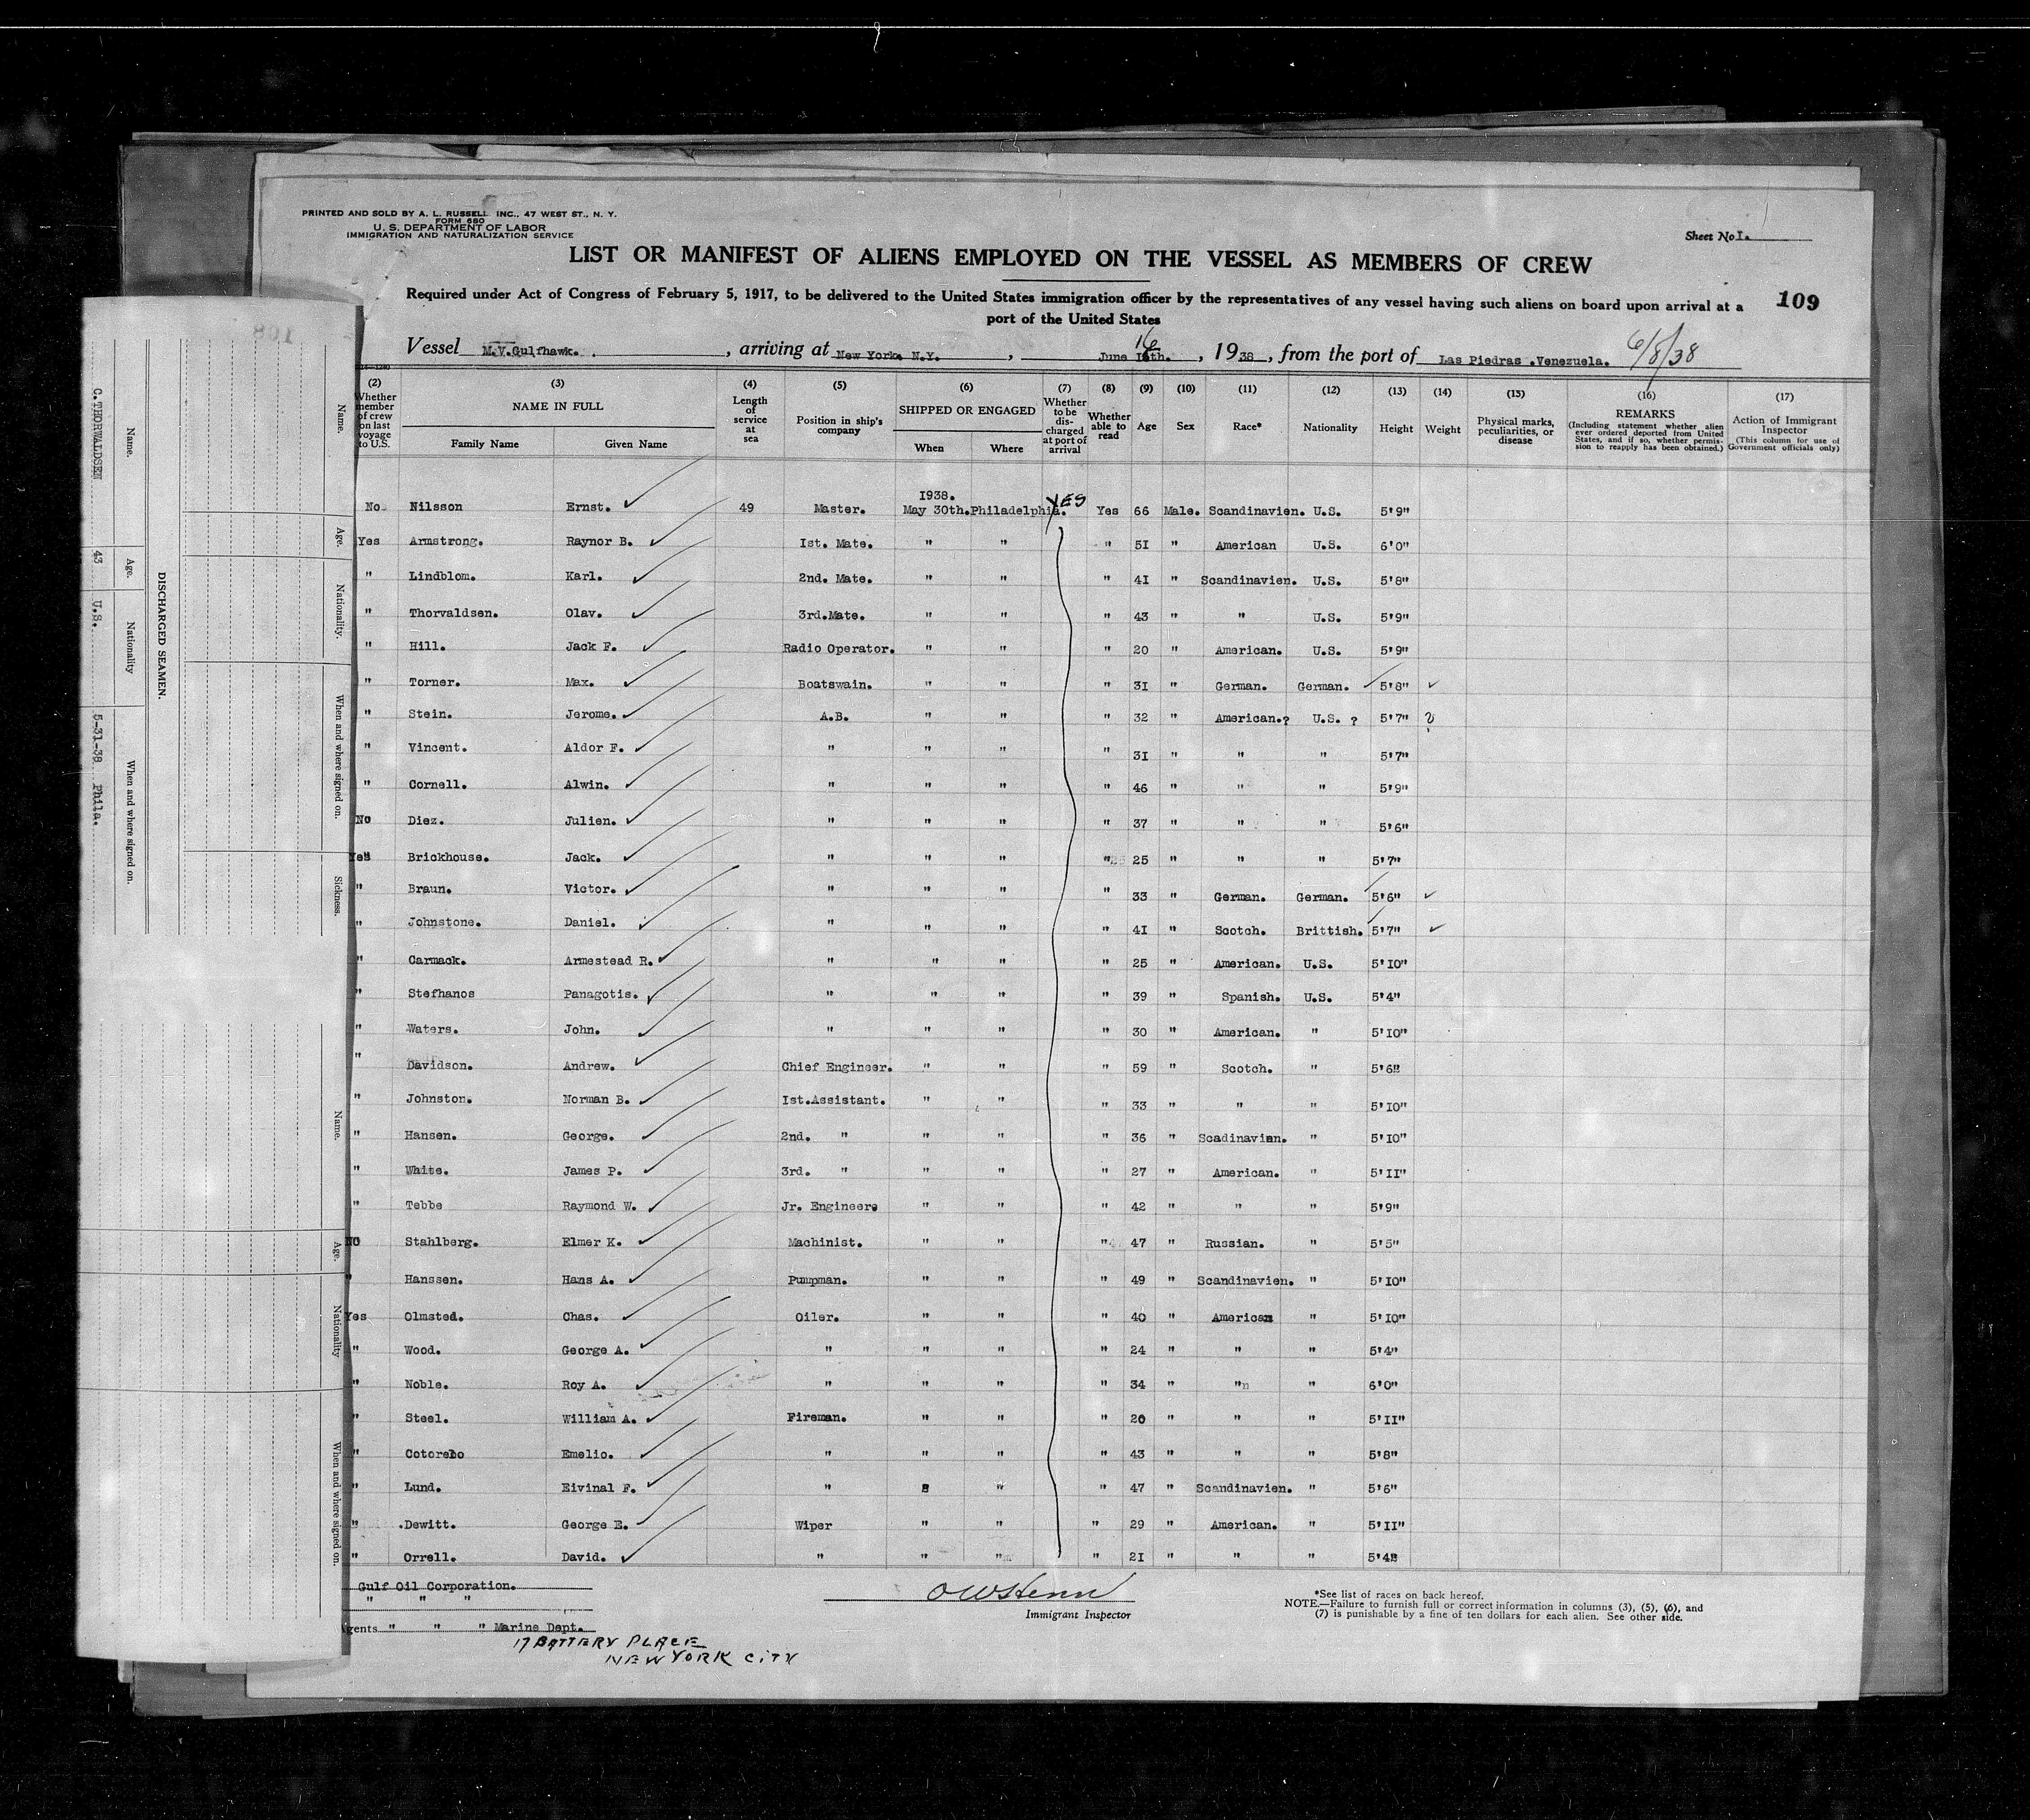 PRINTED AND SOLD BY A. L. RUSSELL INC., 47 WEST ST., N. Y.
FORM 680
U. S. DEPARTMENT OF LABOR
IMMIGRATION AND NATURALIZATION SERVICE
Sheet No I.
LIST OR MANIFEST OF ALIENS EMPLOYED ON THE VESSEL AS MEMBERS OF CREW
Required under Act of Congress of February 5, 1917, to be delivered to the United States immigration officer by the representatives of any vessel having such aliens on board upon arrival at a
port of the United States
109
Vessel M.V.Gulfhawk. , arriving at New York. N.Y. , June 16th. , 1938 , from the port of Las Piedras .Venezuela. 6/8/38
16
(2) (3) (4) (5) (6) (7) (8) (9) (10) (11) (12) (13) (14) (15) (16) (17)
Whether member of crew on last voyage to U.S.
NAME IN FULL
Family Name Given Name
Length of service at sea
Position in ship's company
SHIPPED OR ENGAGED
When Where
Whether to be discharged at port of arrival
Whether able to read
Age Sex Race* Nationality Height Weight
Physical marks, peculiarities, or disease
REMARKS
(Including statement whether alien ever ordered deported from United States, and if so, whether permission to reapply has been obtained.)
Action of Immigrant Inspector
(This column for use of Government officials only)
1938.
No Nilsson Ernst. 49 Master. May 30th. Philadelphia. YES Yes 66 Male. Scandinavien. U.S. 5'9"
Yes Armstrong. Raynor B. 1st. Mate. " " " 51 " American U.S. 6'0"
" Lindblom. Karl. 2nd. Mate. " " " 41 " Scandinavien. U.S. 5'8"
" Thorvaldsen. Olav. 3rd.Mate. " " " 43 " " U.S. 5'9"
" Hill. Jack F. Radio Operator. " " " 20 " American. U.S. 5'9"
" Torner. Max. Boatswain. " " " 31 " German. German. 5'8"
" Stein. Jerome. A.B. " " " 32 " American.? U.S. ? 5'7" ?
" Vincent. Aldor F. " " " " 31 " " " 5'7"
" Cornell. Alwin. " " " " 46 " " " 5'9"
No Diez. Julien. " " " " 37 " " " 5'6"
Yes Brickhouse. Jack. " " " " 25 " " " 5'7"
" Braun. Victor. " " " " 33 " German. German. 5'6"
" Johnstone. Daniel. " " " " 41 " Scotch. Brittish. 5'7"
" Carmack. Armestead R. " " " " 25 " American. U.S. 5'10"
" Stefhanos Panagotis. " " " " 39 " Spanish. U.S. 5'4"
" Waters. John. " " " " 30 " American. " 5'10"
" Davidson. Andrew. Chief Engineer. " " " 59 " Scotch. " 5'6"
" Johnston. Norman B. 1st.Assistant. " " " 33 " " " 5'10"
" Hansen. George. 2nd. " " " " 36 " Scadinavian. " 5'10"
" White. James P. 3rd. " " " " 27 " American. " 5'11"
" Tebbe Raymond W. Jr. Engineer. " " " 42 " " " 5'9"
NO Stahlberg. Elmer K. Machinist. " " " 47 " Russian. " 5'5"
" Hanssen. Hans A. Pumpman. " " " 49 " Scandinavien. " 5'10"
Yes Olmsted. Chas. Oiler. " " " 40 " American " 5'10"
" Wood. George A. " " " " 24 " " " 5'4"
" Noble. Roy A. " " " " 34 " " " 6'0"
" Steel. William A. Fireman. " " " 20 " " " 5'11"
" Emelio. " " " " 43 " " " 5'8"
" Lund. Eivinal F. " " " 47 " Scandinavien. " 5'6"
" .Dewitt. George E. Wiper " " " 29 " American. " 5'11"
" Orrell. David. " " " " 21 " " " 5'4"
Gulf Oil Corporation.
" " "
gents " " " Marine Dept.
17 BATTERY PLACE
NEW YORK CITY
Immigrant Inspector
*See list of races on back hereof.
NOTE.—Failure to furnish full or correct information in columns (3), (5), (6), and
(7) is punishable by a fine of ten dollars for each alien. See other side.
DISCHARGED SEAMEN.
Name. Age. Nationality When and where signed on.
C. THORWALDSEN 43 U.S. 5-31-38 Phila.
Name. Age. Nationality. When and where signed on. Sickness.
Name. Age. Nationality When and where signed on.
108